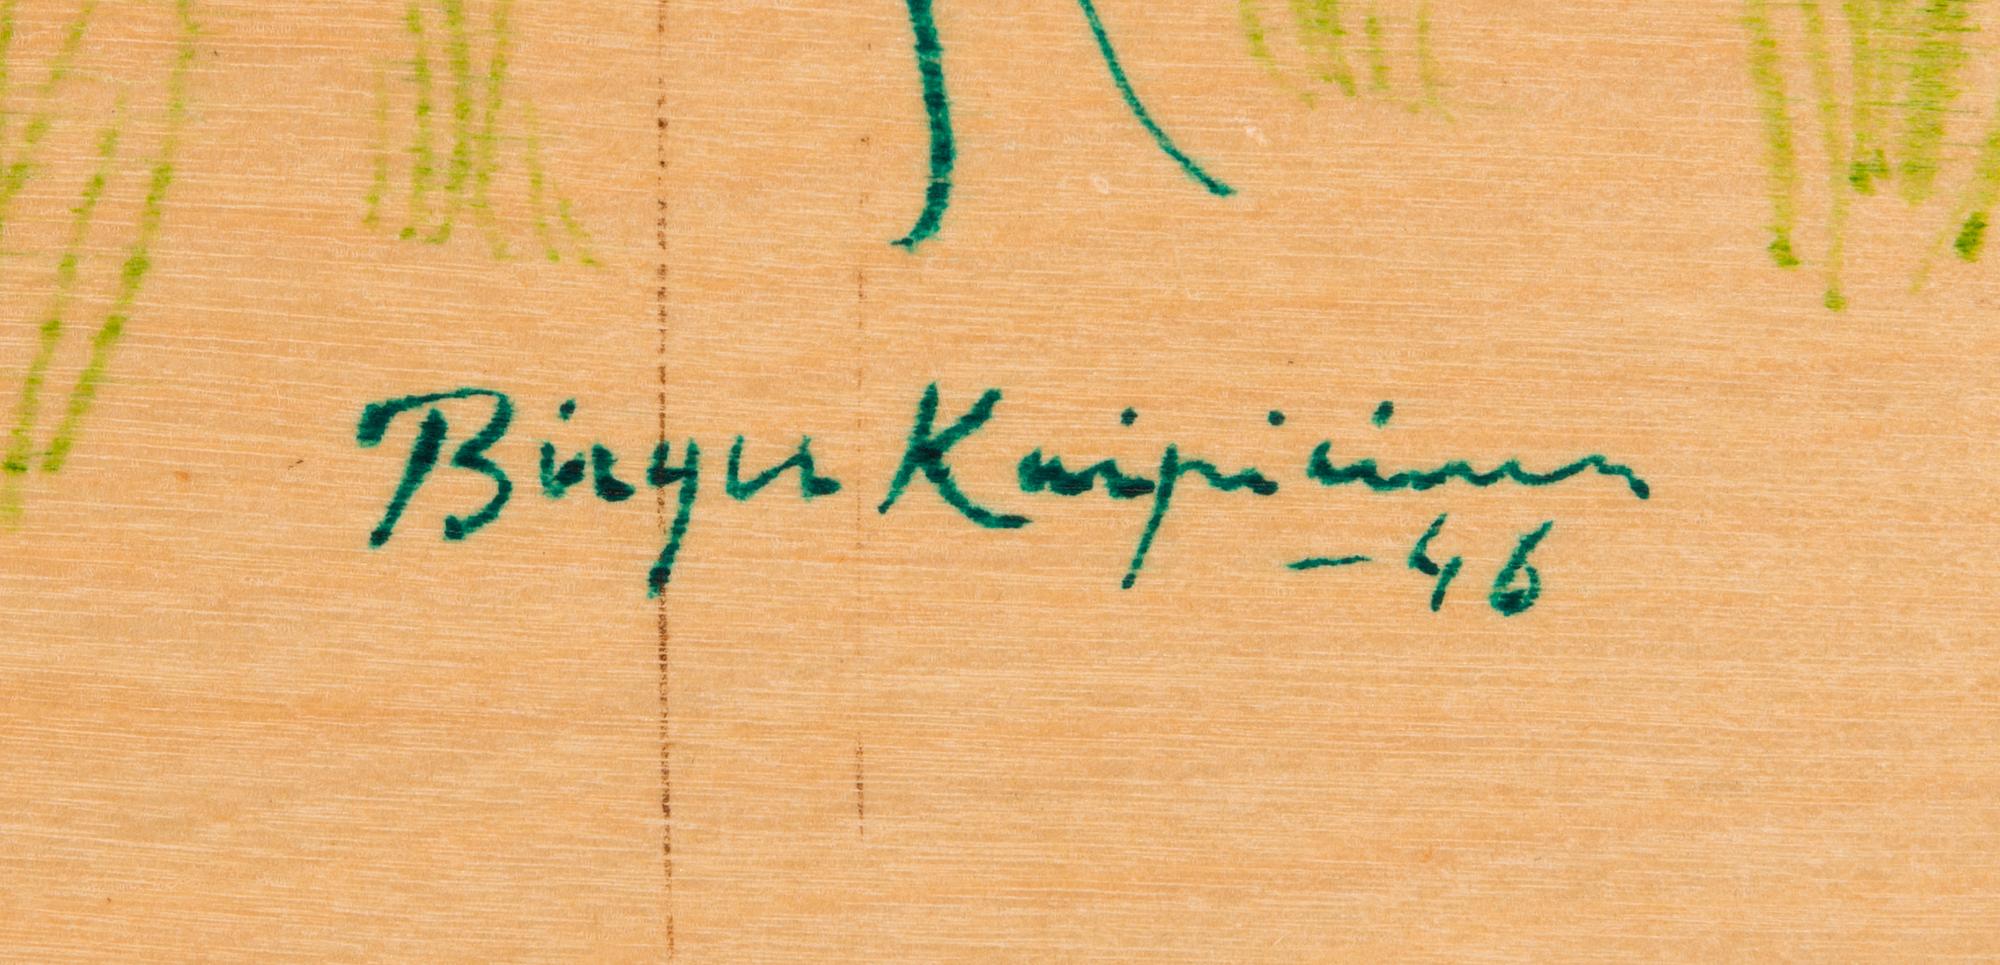 Birger Kaipiainen
-46